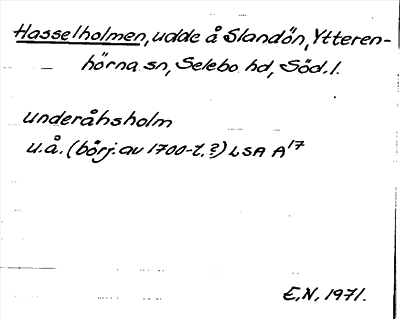 Hasselholmen, udde å Slandön, Ytteren-
hörna sn, Selebo hd, Söd. l.
underåhsholm
u.å. (börj. av 1700-t. ?) LSA A 17
E.N. 1971.